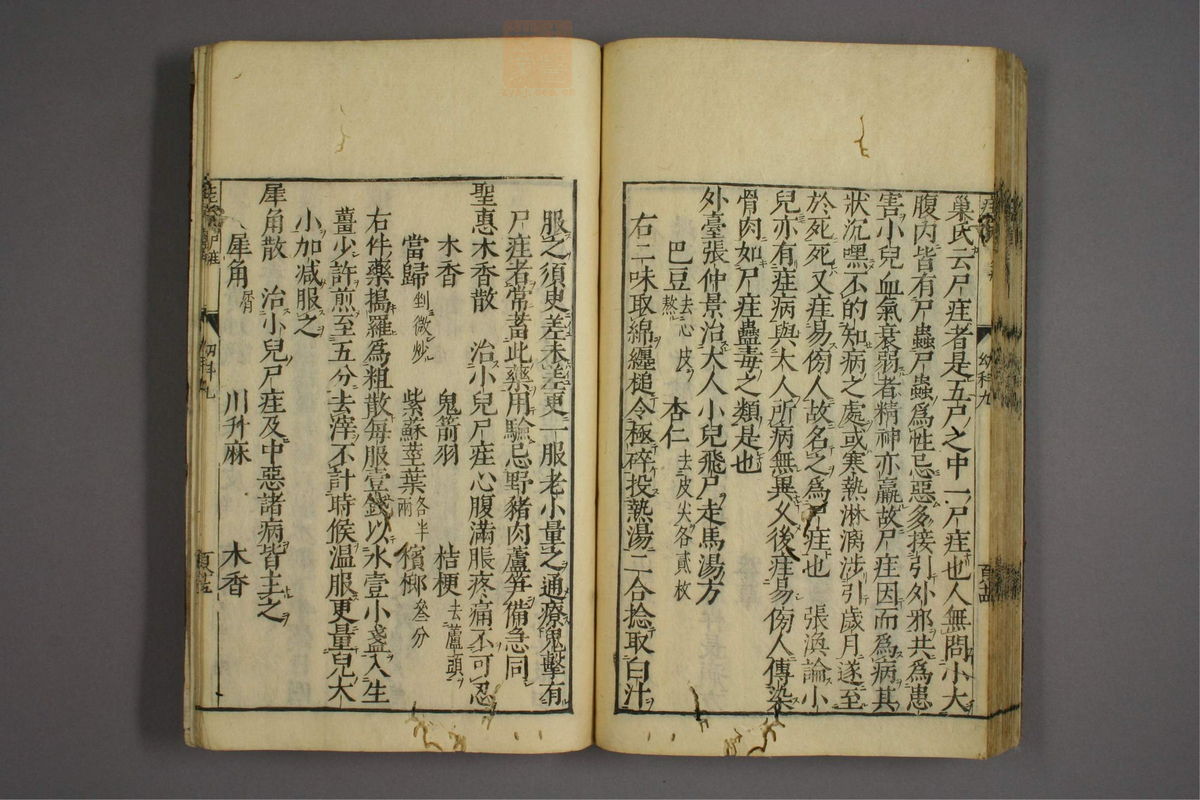 巢氏云尸疰者是五尸之中一尸疰也人無問小大
腹内皆有尸蟲尸蟲爲性忌惡多接引外邪共爲患
害小兒血氣衰弱者精神亦羸故尸疰因而爲病其
狀沉嘿不的知病之處或寒熱淋瀝涉引歲月遂至
於死死又疰易傍人故名之爲尸疰也　張渙論小
兒亦有疰病與大人所病無異父後疰易傍人傳染
骨肉如尸疰蠱毒之類是也
外臺張仲景治大人小兒飛尸走馬湯方
巴豆去心皮熬　杏仁去皮尖各貳枚
右二味取綿纏槌令極碎投熱湯二合捻取白汁
幼科九
服之須臾差未差更一服老小量之通療鬼擊有
尸疰者常蓄此藥用驗忌野豬肉蘆笋備急同
聖惠木香散　治小兒尸疰心腹滿脹疼痛不可忍
木香　鬼箭羽　桔梗去蘆頭
當歸剉微炒　紫蘇莖葉各半兩　檳榔叄分
右件藥搗羅爲粗散每服壹錢以水壹小盞入生
薑少許煎至五分去滓不計時候温服更量兒大
小加减服之
犀角散　治小兒尸疰及中惡諸病皆主之
犀角屑　川升麻　木香
幼科九